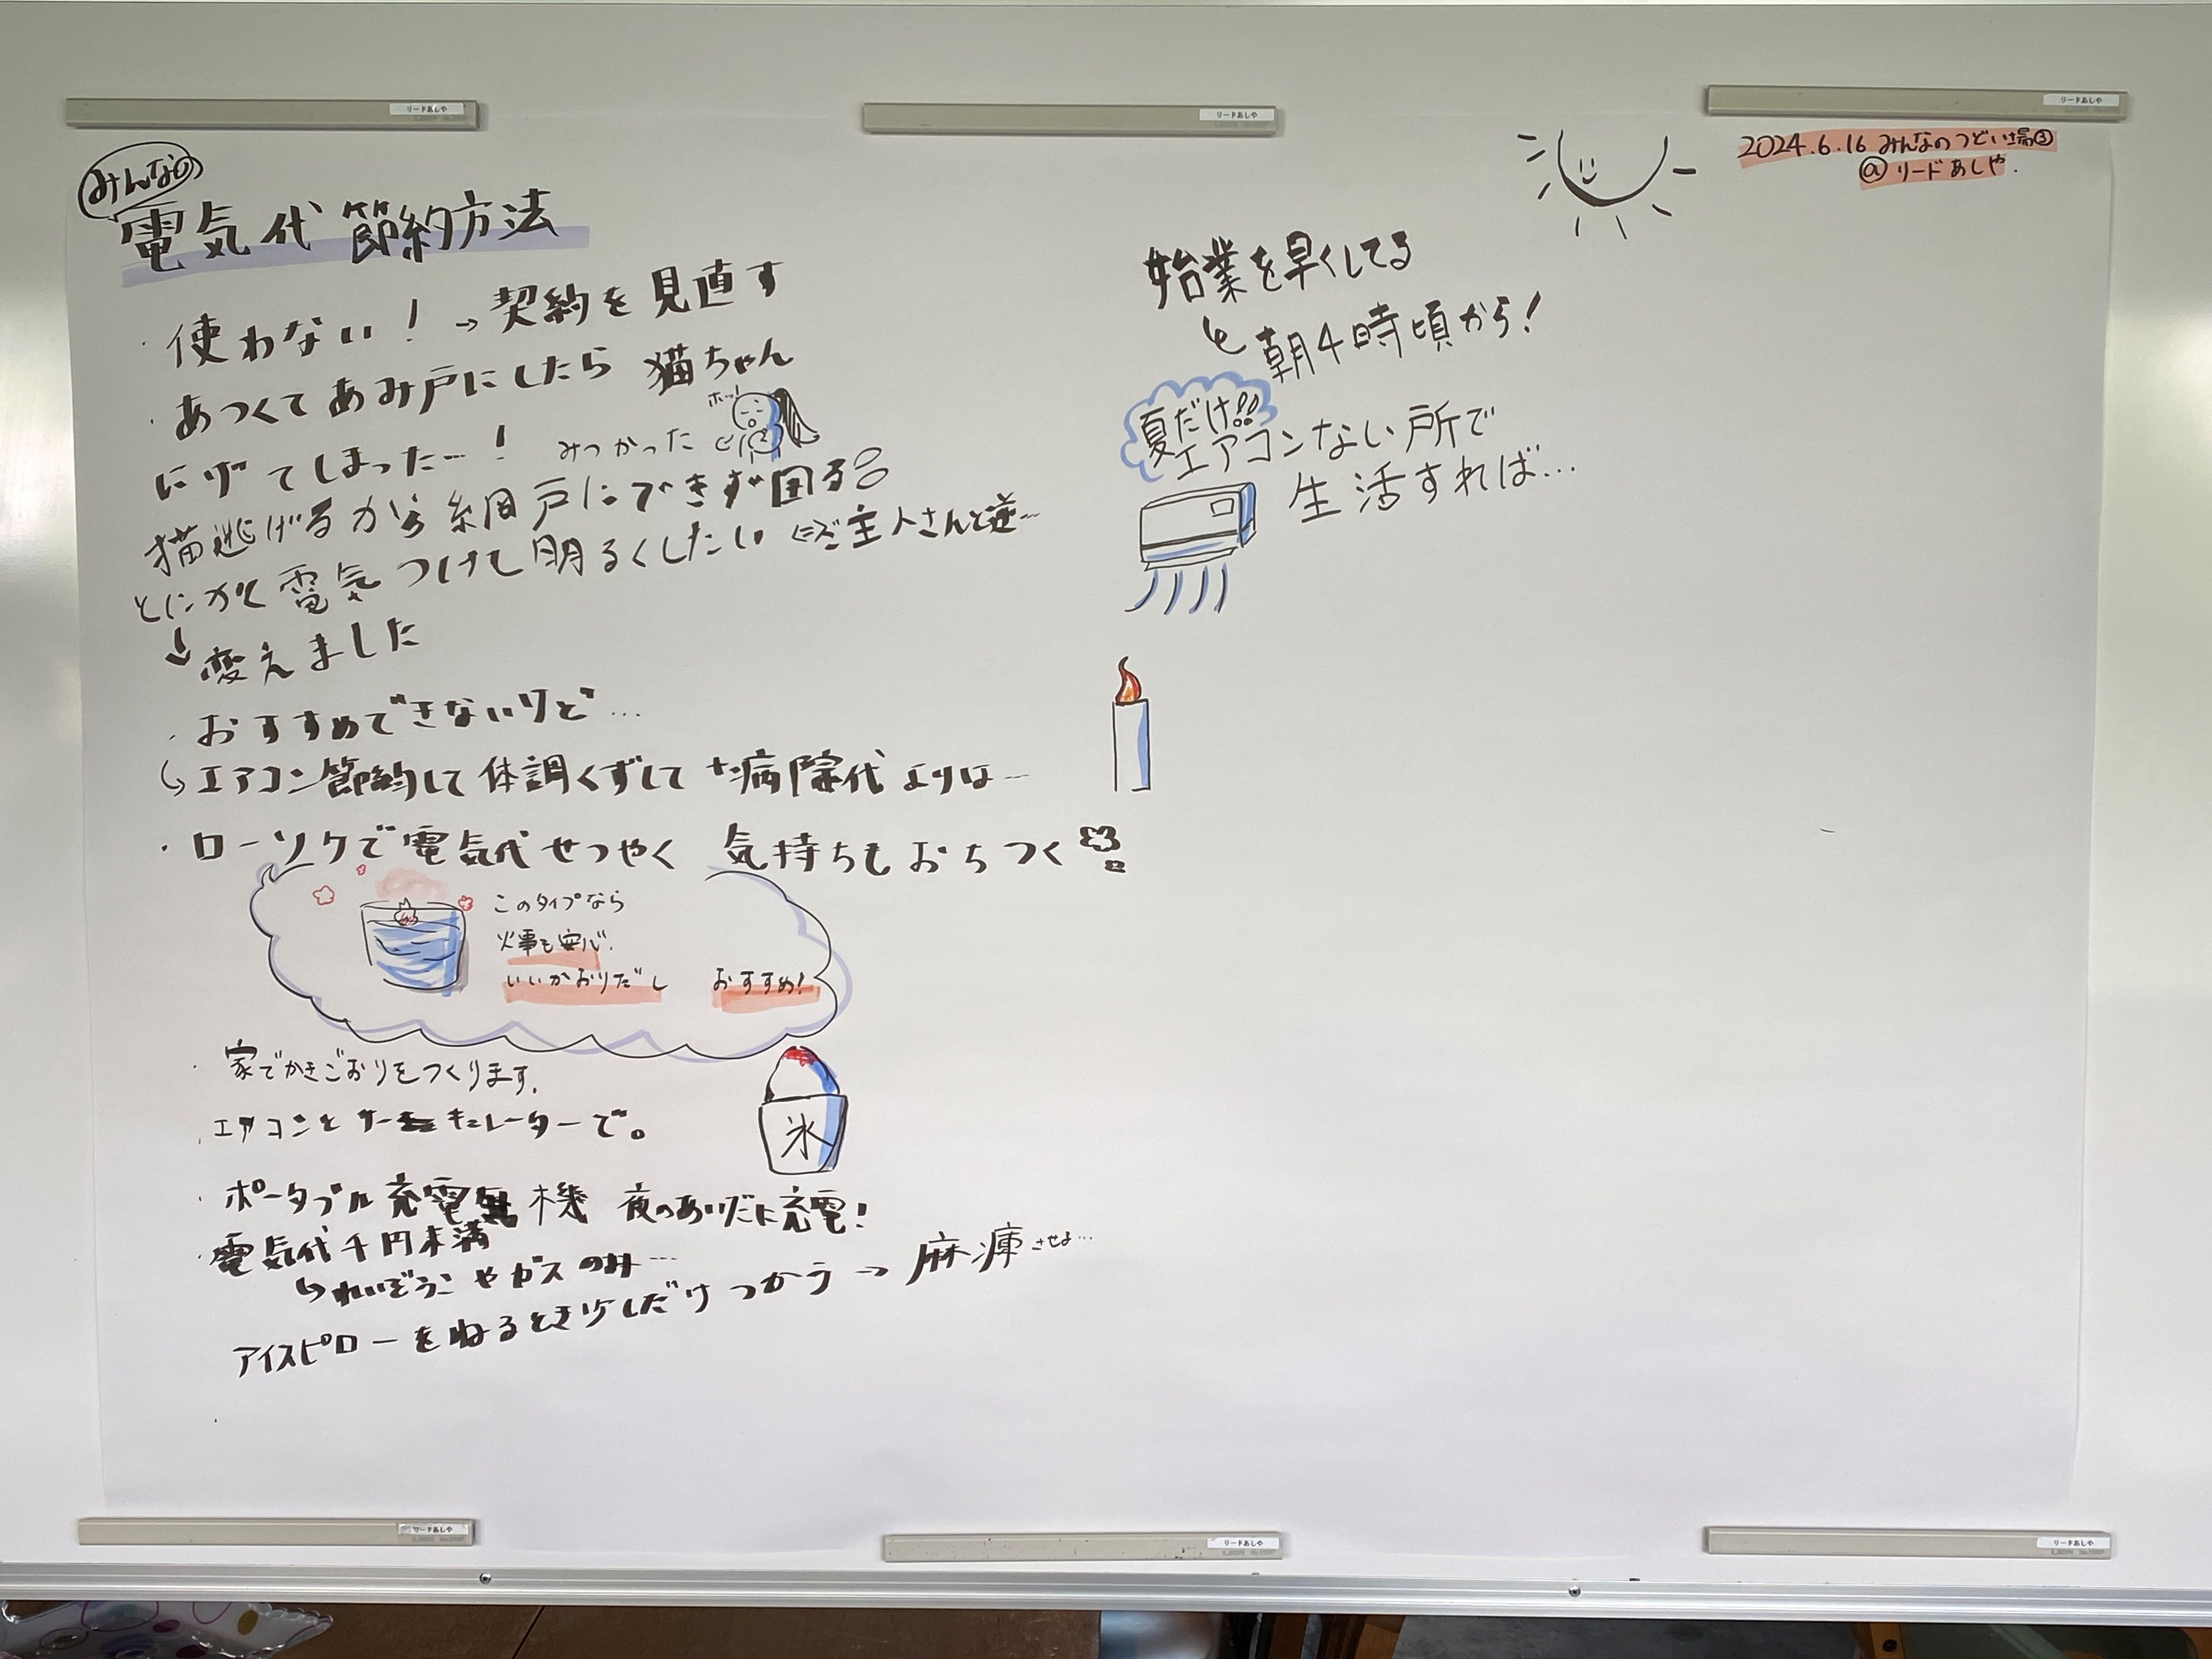 リードあしや
リードあしや
リードあしや
2024.6.16 みんなのつどい場③
@リードあしや.
みんなの
電気代節約方法
・使わない!→契約を見直す
・あつくてあみ戸にしたら 猫ちゃん
にげてしまった…! みつかった
ホッ!
猫逃げるから網戸にできず困る
とにかく電気つけて明るくしたい ⇐ご主人さんと逆…
↓変えました
・おすすめできないけど…
↳エアコン節約して体調くずして 病院代よりは…
・ローソクで電気代せつやく 気持ちもおちつく
このタイプなら
火事も安心.
いいかおりだし おすすめ!
・家でかきごおりをつくります.
氷
・エアコンとサーキュレーターで。
・ポータブル充電機 夜のあいだに充電!
・電気代千円未満
↳れいぞうこやガスのみ…
アイスピローをねるとき少しだけつかう→麻痺させる…
始業を早くしてる
↳朝4時頃から!
夏だけ!!
エアコンない所で
生活すれば…
リードあしや
リードあしや
リードあしや